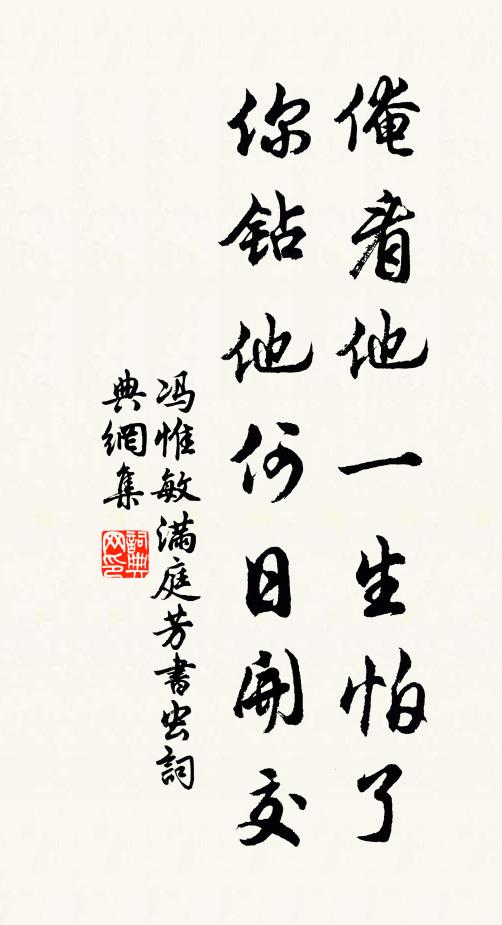 俺看他一生怕了
你鉆他何日開交
冯惟敏满庭芳書虫詞
典網集
詞典
网印